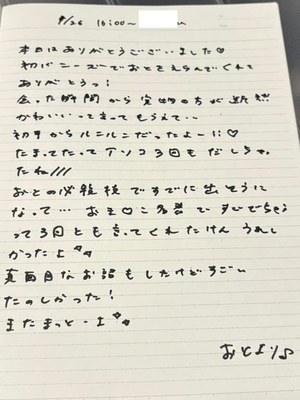 9/26 16:00〜
本日はありがとうございました♡
初バニーズでおとをえらんでくれて
ありがとうっ!
会った瞬間から実物の方が断然
かわいいってまってもらえて…
初手からルンルンだったよー!!♡
たまってたってアソコ3回もだしちゃっ
たね///
おとの必殺技ですでに出そうに
なって…
って3回とも言ってくれたけんうれし
かったよ
真面目なお話もしたけどすごい
たのしかった!
またまっと-よ
おとより♪